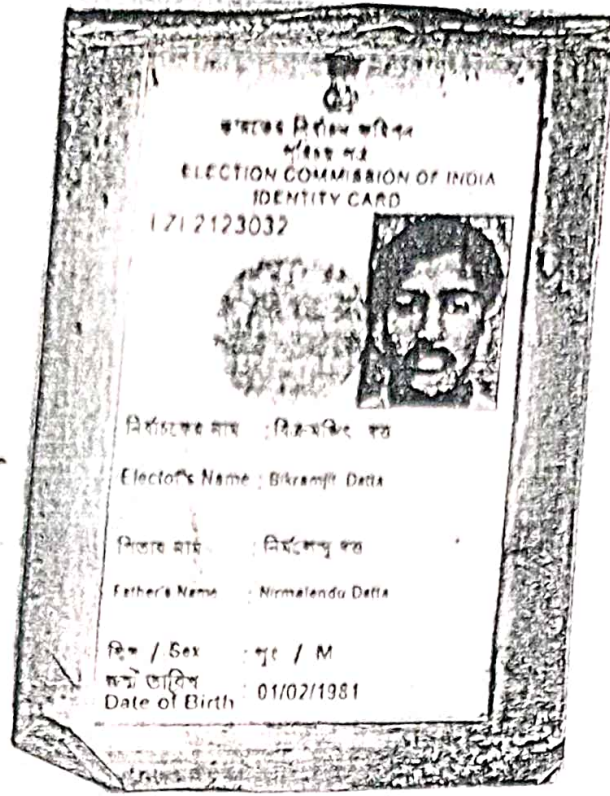 ভারতের নির্বাচন কমিশন
পরিচয় পত্র
ELECTION COMMISSION OF INDIA
IDENTITY CARD
2123032
নির্বাচকের নাম : বিক্রমজিৎ দত্ত
Elector's Name : Bikramjit Datta
পিতার নাম : নির্মলেন্দু দত্ত
Father's Name : Nirmalendu Datta
লিঙ্গ / Sex : পুং / M
জন্ম তারিখ
Date of Birth : 01/02/1981